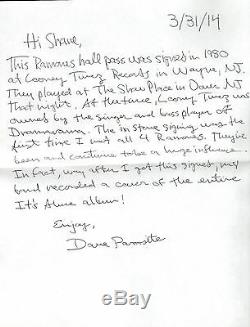 3/31/14
Hi Shane,
This Ramones ball pass was signed in 1980
at Looney Tunez Records in Wayne, NJ.
They played at The Show Place in Dover NJ
that night. At the time, Looney Tunez was
owned by the singer and bass player of
Dramarama. The in store signing was the
first time I met all 4 Ramones. They've
been and continue to be a huge influence...
In fact, way after I got this signed, my
band recorded a cover of the entire
It's Alive album!
Enjoy,
Dave